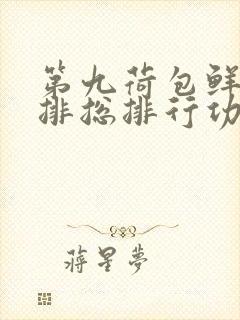 第九荷包鲜
排总排行功
蒋星梦